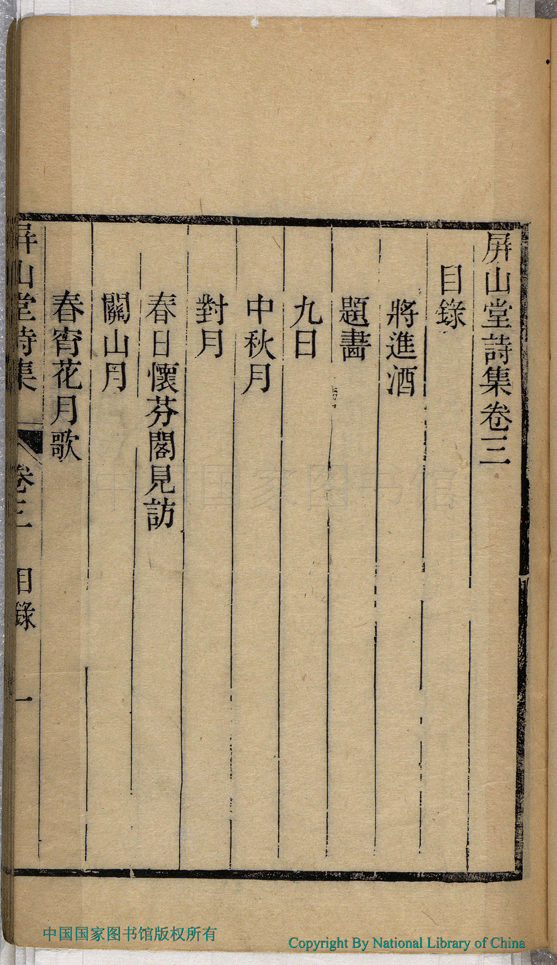 屛山堂詩集卷三
目錄
將進酒
題畵
九日
中秋月
對月
春日懷芬閣見訪
關山月
春宵花月歌
屛山堂詩集 卷三 目錄 一
中国国家图书馆
中国国家图书馆版权所有
Copyright By National Library of China